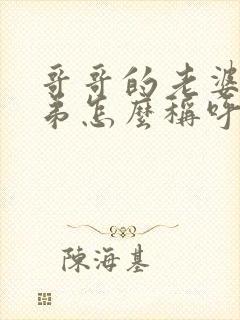 哥哥的老婆
弟怎麼稱呼
陳海基